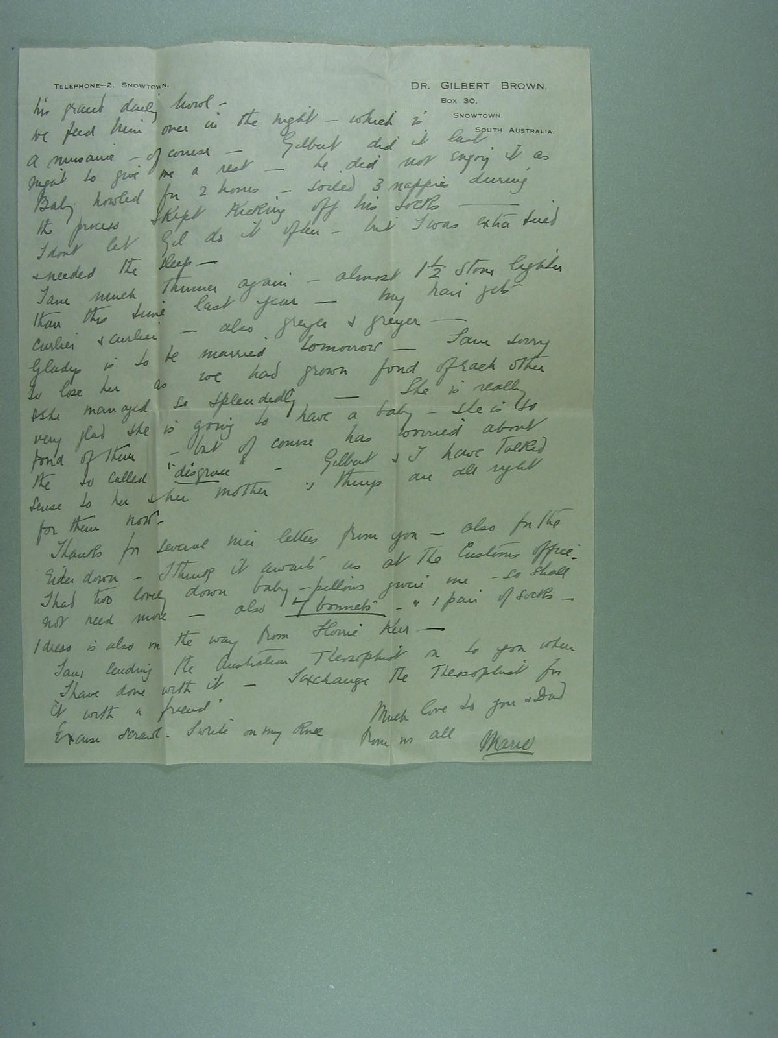 TELEPHONE-2, SNOWTOWN.
DR. GILBERT BROWN.
BOX 30,
SNOWTOWN
SOUTH AUSTRALIA.
his grand daily howl -
we feed him over in the night - which is
a nuisance - of course - Gilbert did it last
night to give me a rest - he did not enjoy it as
Baby howled for 2 hours - soiled 3 nappies during
the process & kept kicking off his socks -
I dont let Gil do it often - but I was extra tired
& needed the sleep -
I am much thinner again - almost 1½ stone lighter
than this time last year - my hair gets
curlier & curlier - also greyer & greyer -
Gladys is to be married tomorrow - I am sorry
to lose her as we had grown fond of each other
& she managed so splendidly - She is really
very glad she is going to have a baby - she is so
fond of them - but of course has worried about
the so called "disgrace" - Gilbert & I have talked
sense to her & her mother & things are all right
for them now -
Thanks for several nice letters from you - also for the
Eider down - I think it awaits us at the Customs office.
I had two lovely down baby-pillows given me - so shall
not need more - also 4 bonnets - & 1 pair of socks -
1 dress is also on the way from Florrie Kerr -
I am sending the Australian Theosophist on to you when
I have done with it - I exchange the Theosophist for
it with a friend
Excuse scrawl - I write on my knee
Much love to you & Dad
from us all Marie